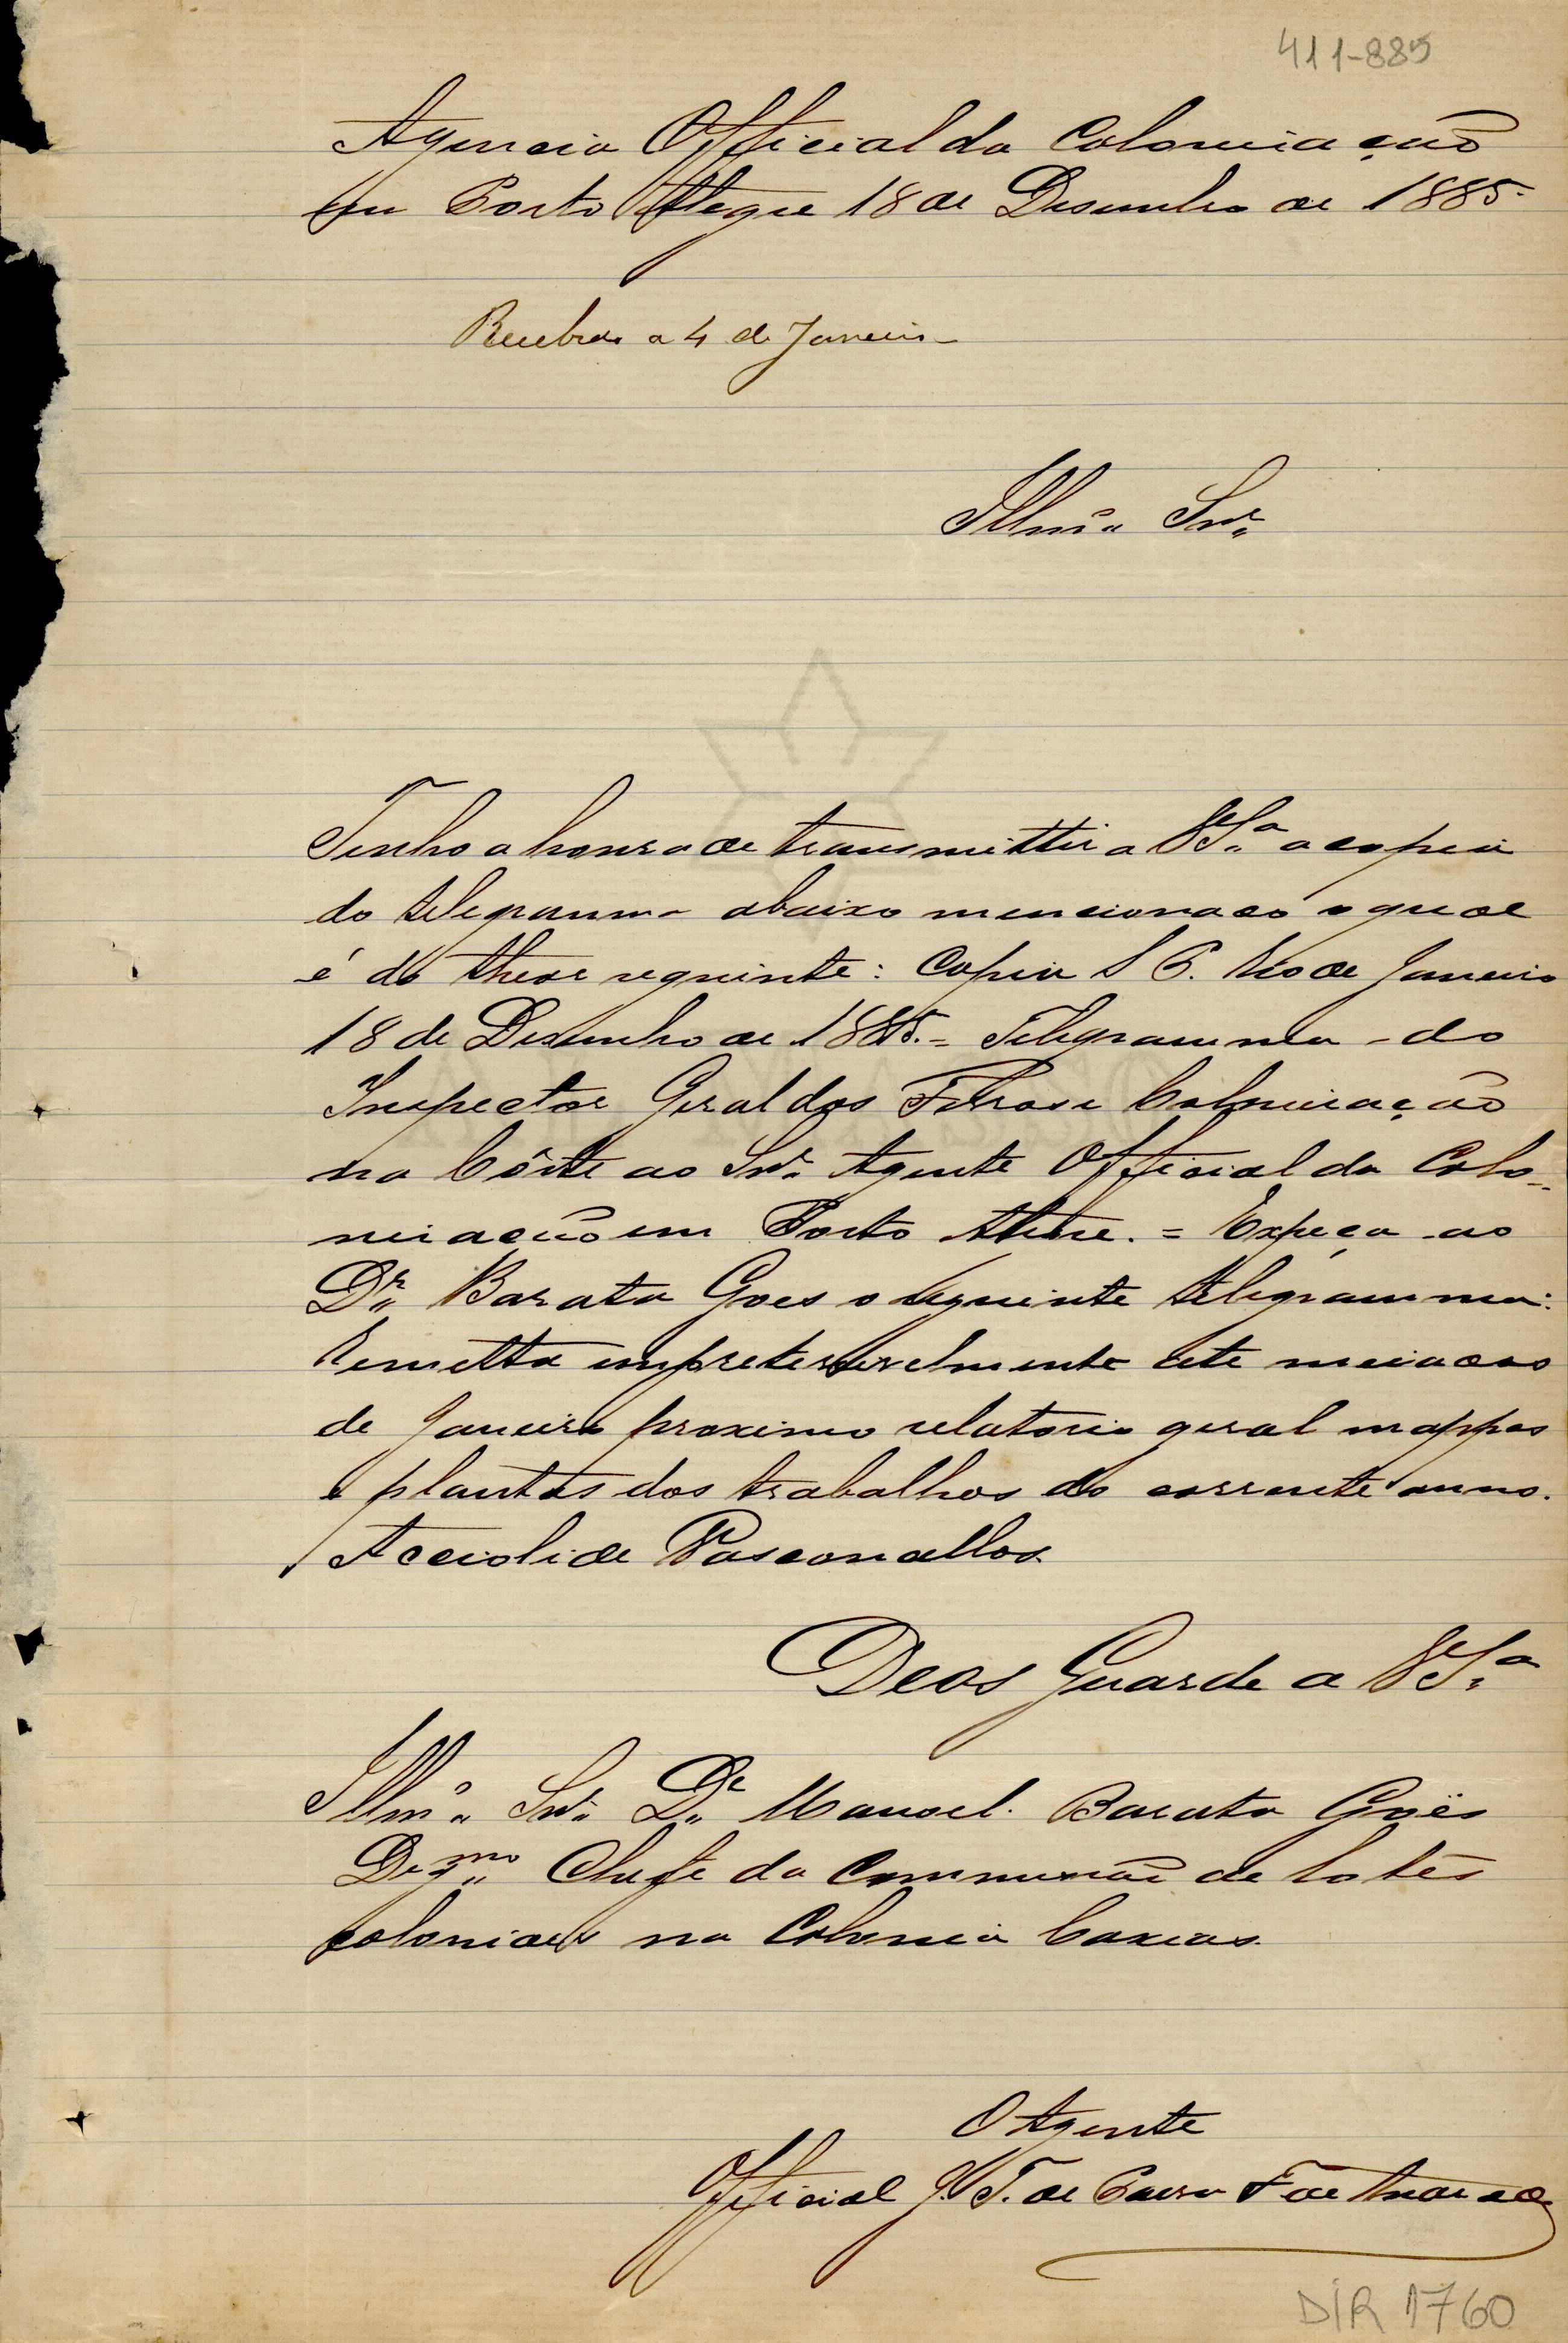 411-885
Agencia Official da Coloniação
em Porto Alegre 18 de Desembro de 1885.
Recebido a 4 de Janeiro
Illmo. Snr.
Tenho a honra de transmittir a V.Sa. a copia
do telegramma abaixo mencionado o qual
é do theor seguinte: Copia S P. Rio de Janeiro
18 de Desembro de 1885. = Telegramma do
Inspector Geral das Terras e Coloniação
na Côrte ao Snr. Agente Official da Colo-
niação em Porto Alegre. = Expeça ao
Dr. Barata Goes o seguinte telegramma:
Remetta impreterivelmente até meiados
de Janeiro proximo relatorio geral mappas
e plantas dos trabalhos do corrente anno.
Accioli de Vasconcellos
Deos Guarde a V.Sa.
Illmo. Snr. Dr. Manoel Barata Goës
Dig.mo Chefe da Commissão de lotes
coloniaes na Colonia Caxias.
O Agente
Official J. T. de
DIR 1760